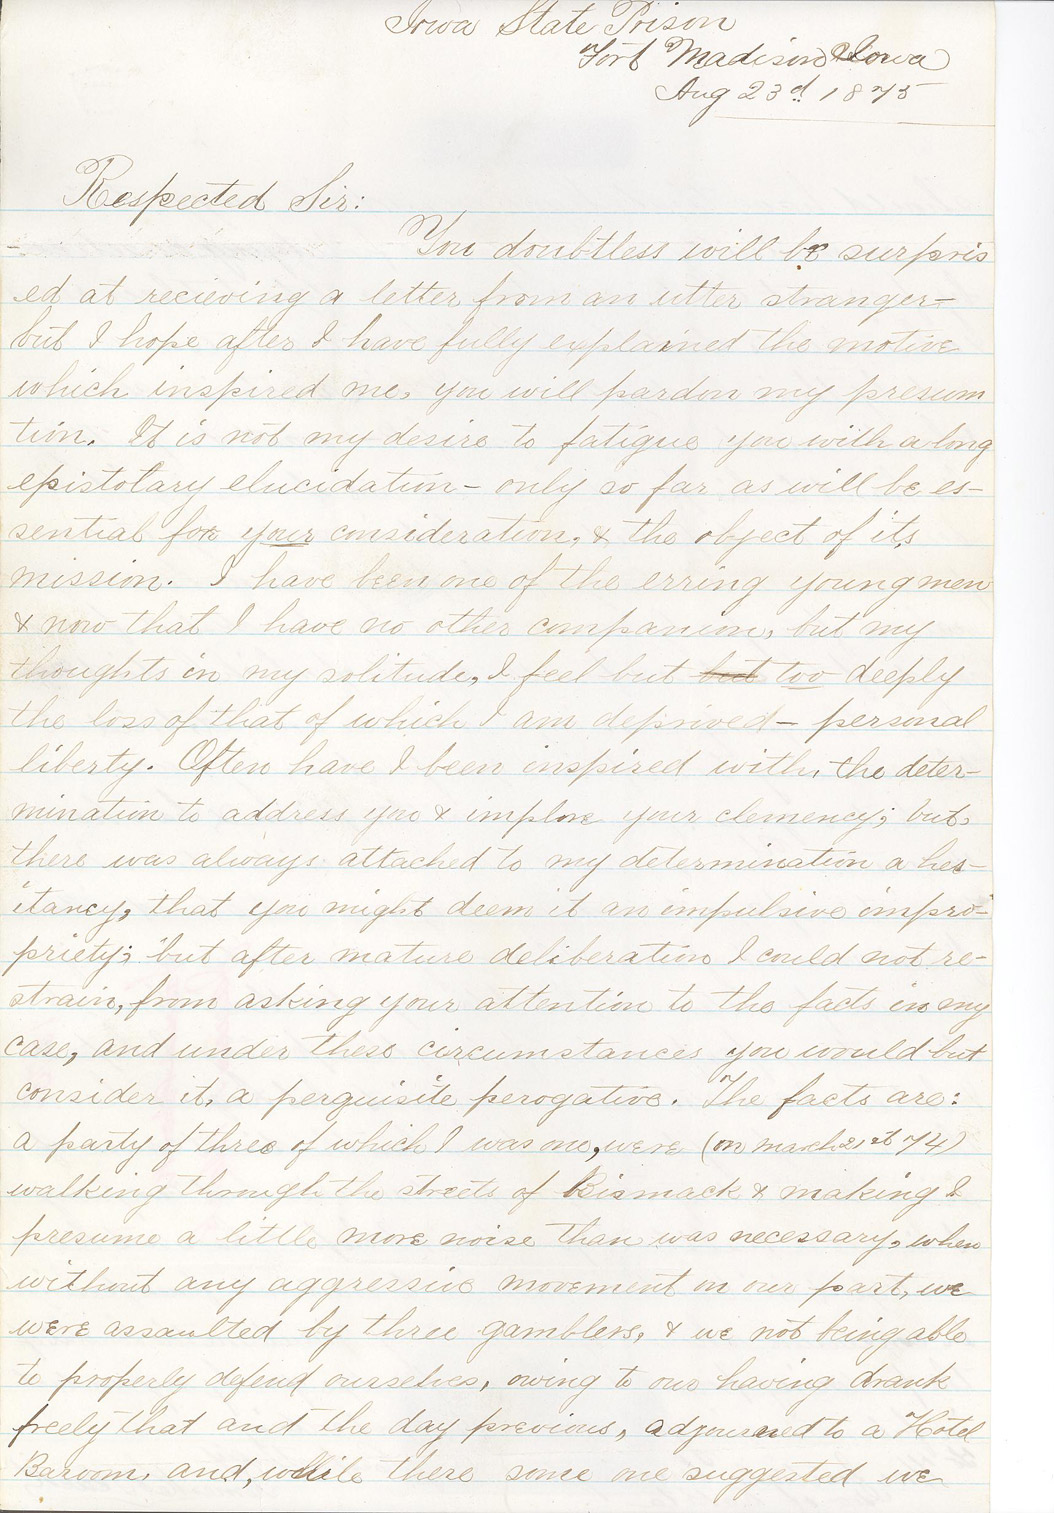 Iowa State Prison
Fort Madison Iowa
Aug 23d. 1875
Respected Sir:
You doubtless will be surpris
ed at recieving a letter from an utter stranger-
but I hope after I have fully explained the motive
which inspired me, you will pardon my presum
tion. It is not my desire to fatigue you with a long
epistolary elucidation - only so far as will be es-
sential for your consideration, & the object of its
mission. I have been one of the erring young men
& now that I have no other companion, but my
thoughts in my solitude, I feel but but too deeply
the loss of that of which I am deprived - personal
liberty. Often have I been inspired with, the deter-
mination to address you & implore your clemency; but,
there was always attached to my determination a hes-
itancy, that you might deem it an impulsive impro-
priety; but after mature deliberation I could not re-
strain, from asking your attention to the facts in my
case, and under these circumstances you would but
consider it, a perquisite perogative. The facts are:
a party of three of which I was one, were (on march 21st 74)
walking through the streets of Bismack & making I
presume a little more noise than was necessary, when
without any aggressive movement on our part, we
were assaulted by three gamblers, & we not being able
to properly defend ourselves, owing to our having drank
freely that and the day previous, adjourned to a Hotel
Baroom, and, while there some one suggested we